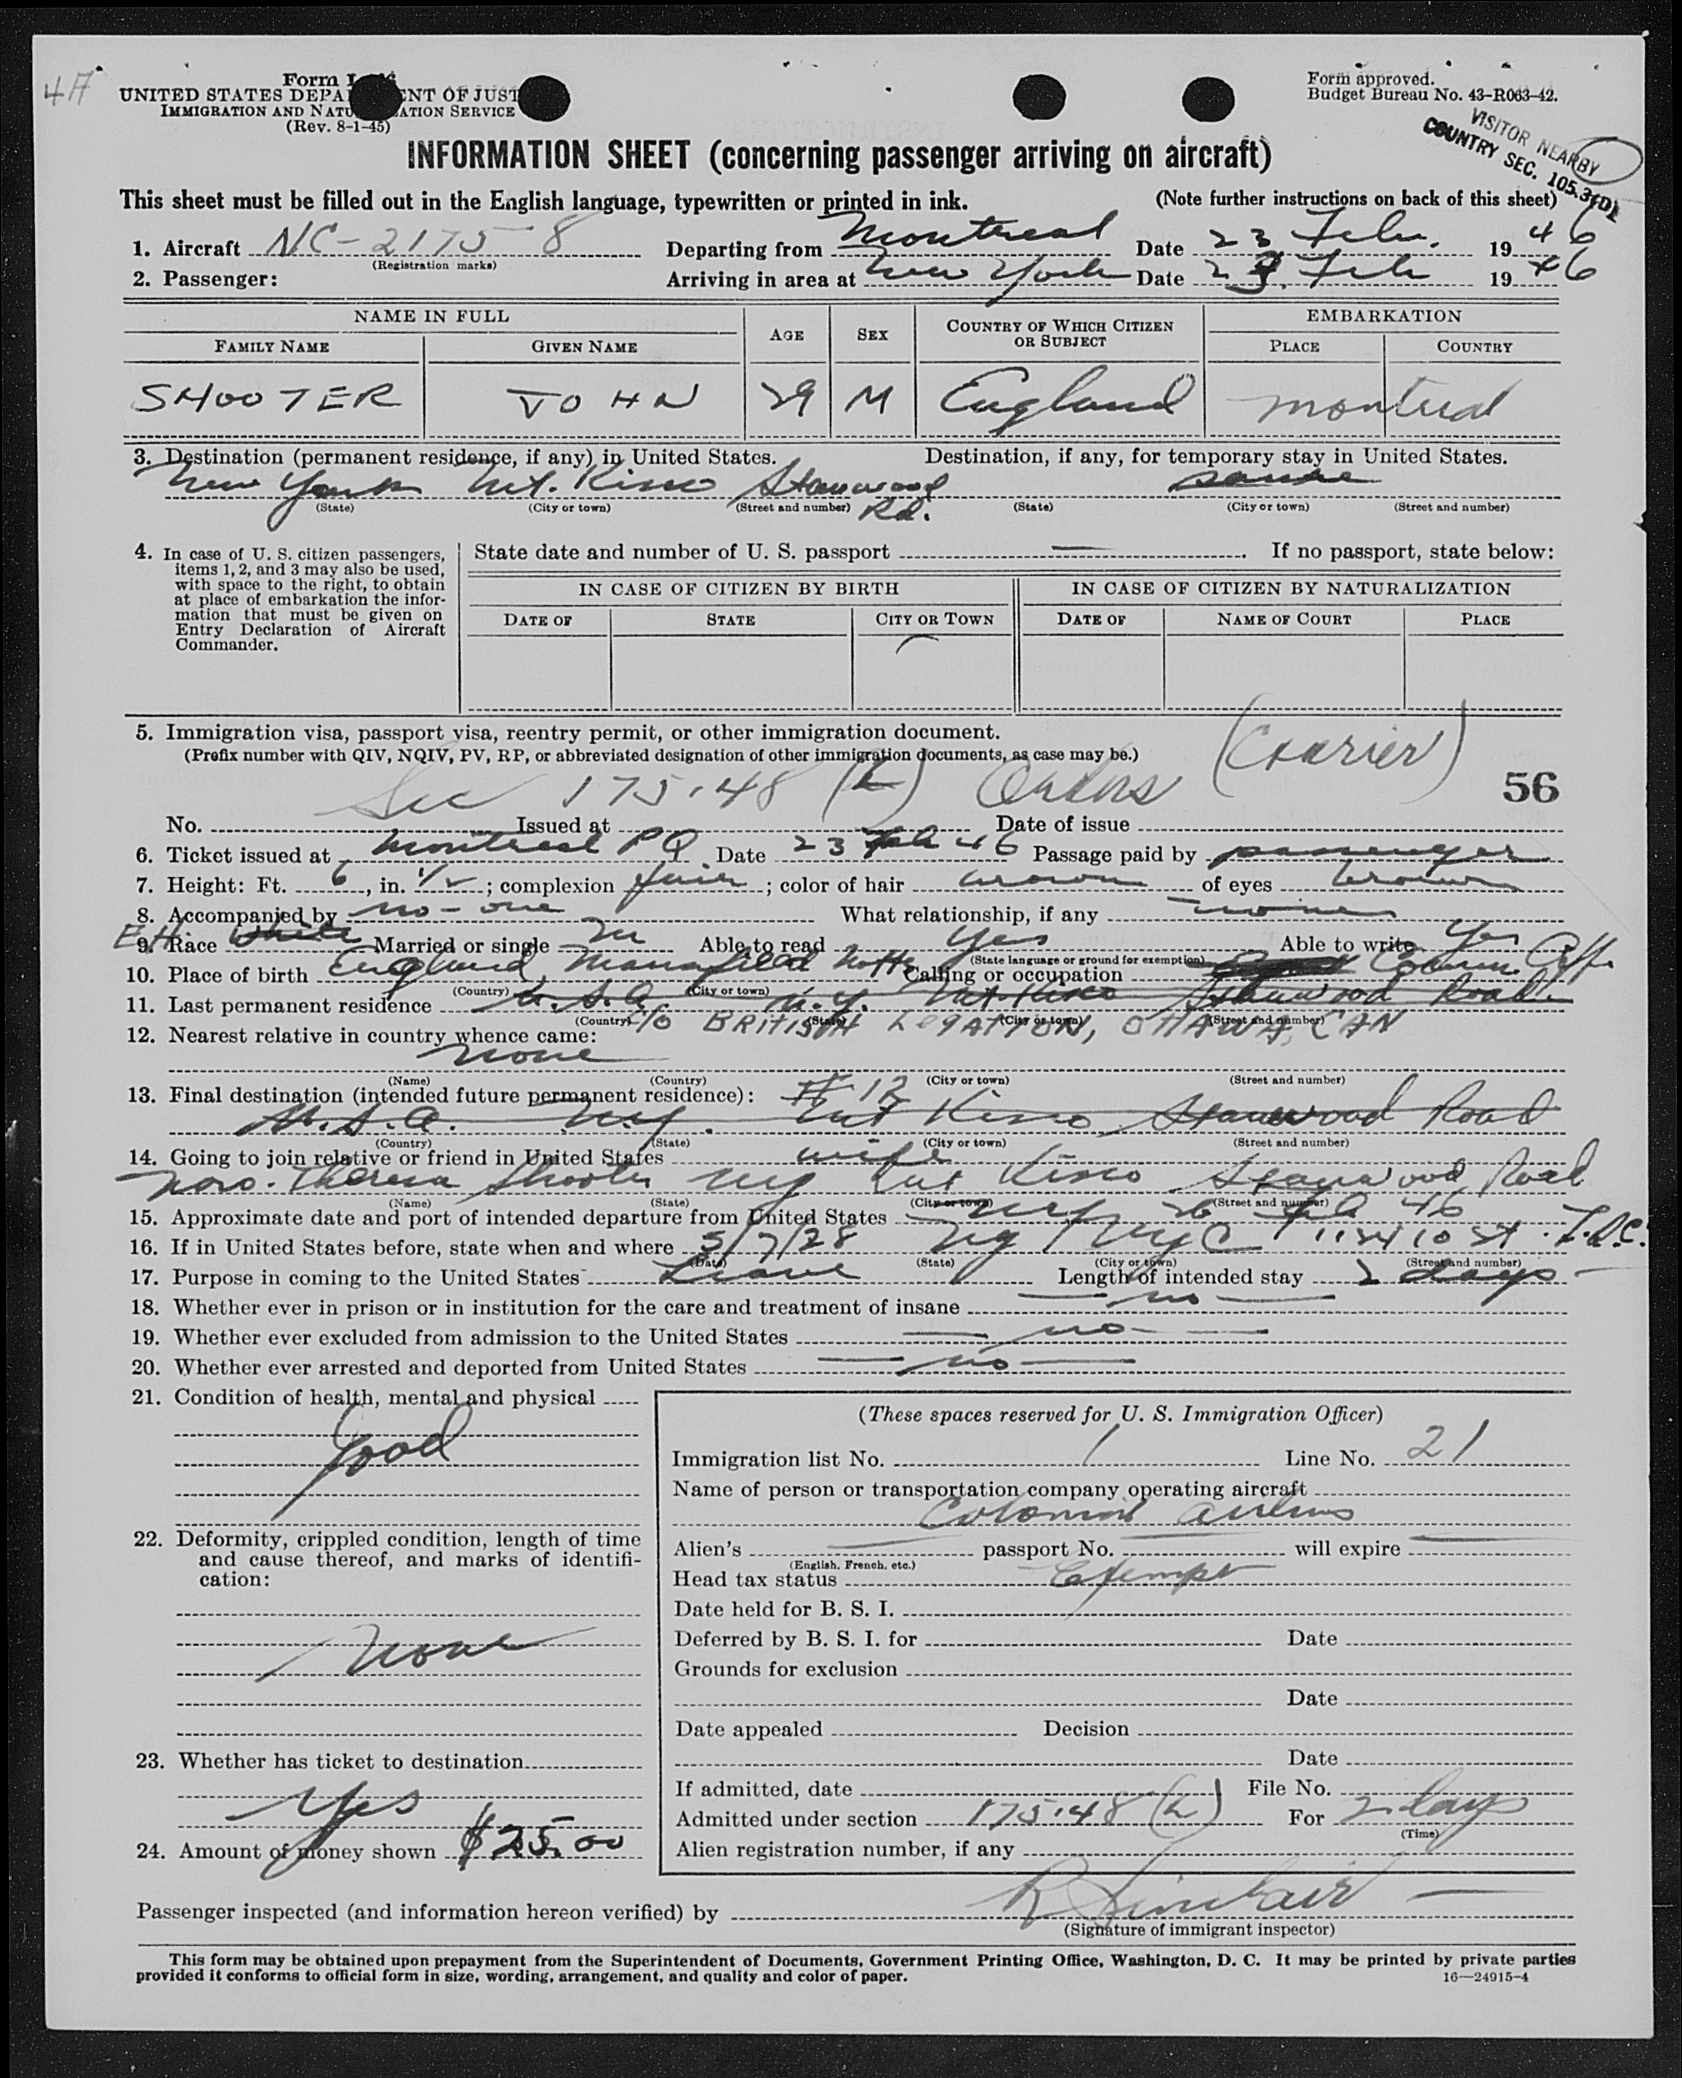 4A
Form I-466
UNITED STATES DEPARTMENT OF JUSTICE
IMMIGRATION AND NATURALIZATION SERVICE
(Rev. 8-1-45)
Form approved.
Budget Bureau No. 43-R063-42.
VISITOR NEARBY
COUNTRY SEC. 105.3(D)
INFORMATION SHEET (concerning passenger arriving on aircraft)
This sheet must be filled out in the English language, typewritten or printed in ink. (Note further instructions on back of this sheet)
1. Aircraft NC-21758 Departing from Montreal Date 23 Feb. 1946
(Registration marks)
2. Passenger: Arriving in area at New York Date 23. Feb 1946
NAME IN FULL AGE SEX COUNTRY OF WHICH CITIZEN OR SUBJECT EMBARKATION
FAMILY NAME GIVEN NAME PLACE COUNTRY
SHOOTER JOHN 29 M England Montreal
3. Destination (permanent residence, if any) in United States. Destination, if any, for temporary stay in United States.
New York Mt. Kisco Stanwood Rd. same
(State) (City or town) (Street and number) (State) (City or town) (Street and number)
4. In case of U. S. citizen passengers, items 1, 2, and 3 may also be used, with space to the right, to obtain at place of embarkation the information that must be given on Entry Declaration of Aircraft Commander.
State date and number of U. S. passport —. If no passport, state below:
IN CASE OF CITIZEN BY BIRTH IN CASE OF CITIZEN BY NATURALIZATION
DATE OF STATE CITY OR TOWN DATE OF NAME OF COURT PLACE
5. Immigration visa, passport visa, reentry permit, or other immigration document.
(Prefix number with QIV, NQIV, PV, RP, or abbreviated designation of other immigration documents, as case may be.)
Sec 175.48 (L) Orders (Courier) 56
No. Issued at Date of issue
6. Ticket issued at Montreal PQ Date 23 Feb 46 Passage paid by passenger
7. Height: Ft. 6, in. 1/2; complexion fair; color of hair brown of eyes brown
8. Accompanied by no-one What relationship, if any none
9. Race White Married or single M Able to read Yes Able to write Yes
(State language or ground for exemption)
10. Place of birth England, Mansfield Notts Calling or occupation
(Country) (City or town)
11. Last permanent residence U.S.A. N.Y. Mt Kisco Stanwood Road
(Country) (State) (City or town) (Street and number)
C/O BRITISH LEGATION, OTTAWA, CAN
12. Nearest relative in country whence came:
none
(Name) (Country) (City or town) (Street and number)
13. Final destination (intended future permanent residence): # 12
U.S.A. N.Y. Mt Kisco Stanwood Road
(Country) (State) (City or town) (Street and number)
14. Going to join relative or friend in United States wife
Mrs. Theresa Shooter NY Mt Kisco Stanwood Road
(Name) (State) (City or town) (Street and number)
15. Approximate date and port of intended departure from United States NY 26 Feb 46
16. If in United States before, state when and where 5/7/28 NY NYC
(Date) (State) (City or town) (Street and number)
17. Purpose in coming to the United States Leave Length of intended stay 2 days
18. Whether ever in prison or in institution for the care and treatment of insane — no —
19. Whether ever excluded from admission to the United States — no —
20. Whether ever arrested and deported from United States — no —
21. Condition of health, mental and physical
Good
22. Deformity, crippled condition, length of time and cause thereof, and marks of identification:
None
23. Whether has ticket to destination
Yes
24. Amount of money shown $25.00
(These spaces reserved for U. S. Immigration Officer)
Immigration list No. 1 Line No. 21
Name of person or transportation company operating aircraft
Colonial Airlines
Alien's — passport No. — will expire —
(English, French, etc.)
Head tax status Exempt
Date held for B. S. I.
Deferred by B. S. I. for Date
Grounds for exclusion
Date
Date appealed Decision
Date
If admitted, date File No.
Admitted under section 175.48 (L) For 2 days
(Time)
Alien registration number, if any
Passenger inspected (and information hereon verified) by R Sinclair
(Signature of immigrant inspector)
This form may be obtained upon prepayment from the Superintendent of Documents, Government Printing Office, Washington, D. C. It may be printed by private parties
provided it conforms to official form in size, wording, arrangement, and quality and color of paper. 16—24915-4